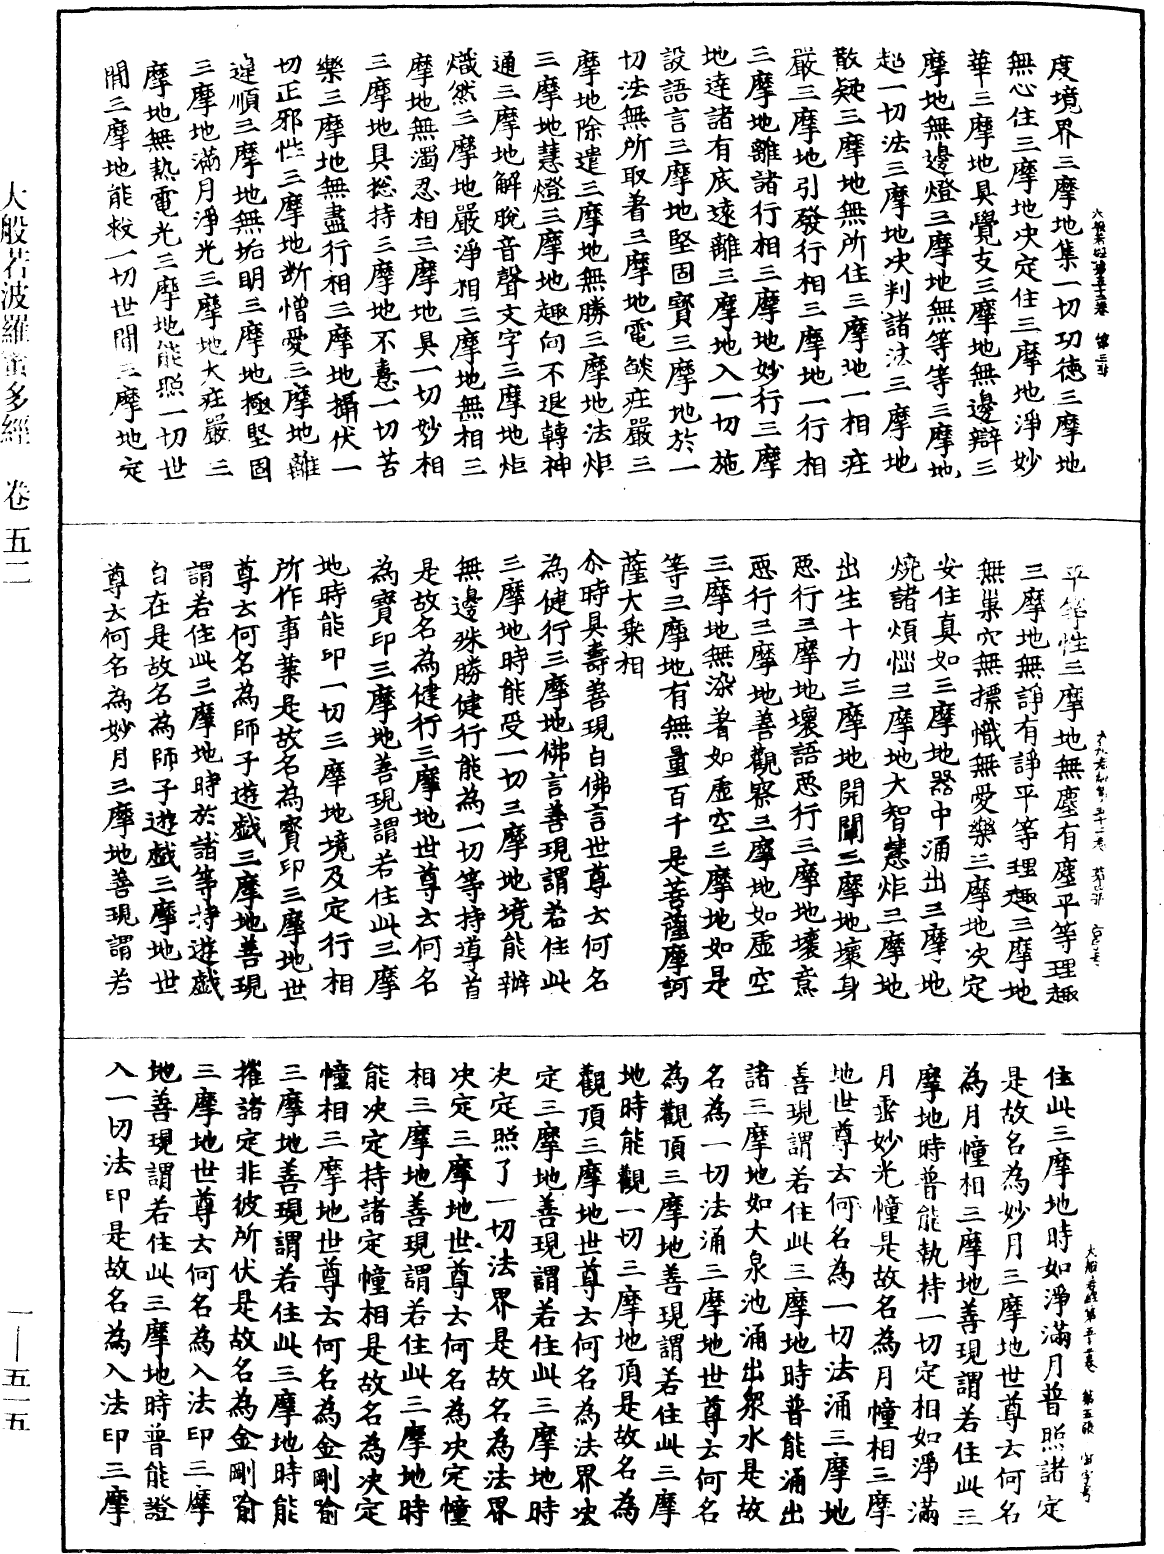 度境界三摩地集一切功德三摩地
無心住三摩地决定住三摩地淨妙
華三摩地具覺支三摩地無邊辯三
摩地無邊燈三摩地無等等三摩地
超一切法三摩地决判諸法三摩地
散疑三摩地無所住三摩地一相莊
嚴三摩地引發行相三摩地一行相
三摩地離諸行相三摩地妙行三摩
地達諸有底遠離三摩地入一切施
設語言三摩地堅固寶三摩地於一
切法無所取著三摩地電燄莊嚴三
摩地除遣三摩地無勝三摩地法炬
三摩地慧燈三摩地趣向不退轉神
通三摩地解脫音聲文字三摩地炬
熾然三摩地嚴淨相三摩地無相三
摩地無濁忍相三摩地具一切妙相
三摩地具揔持三摩地不憙一切苦
樂三摩地無盡行相三摩地攝伏一
切正邪性三摩地断憎愛三摩地離
違順三摩地無垢明三摩地極堅固
三摩地滿月淨光三摩地大莊嚴三
摩地無熱電光三摩地能照一切世
間三摩地能救一切世間三摩地定
平等性三摩地無塵有塵平等理趣
三摩地無諍有諍平等理趣三摩地
無巢穴無摽幟無愛樂三摩地决定
安住真如三摩地器中涌出三摩地
燒諸煩惱三摩地大智慧炬三摩地
出生十力三摩地開闡三摩地壞身
惡行三摩地壞語惡行三摩地壞意
惡行三摩地善觀察三摩地如虛空
三摩地無染著如虛空三摩地如是
等三摩地有無量百千是菩薩摩訶
薩大乘相
尒時具壽善現白佛言世尊云何名
為健行三摩地佛言善現謂若住此
三摩地時能受一切三摩地境能辦
無邊殊勝健行能為一切等持導首
是故名為健行三摩地世尊云何名
為寶印三摩地善現謂若住此三摩
地時能印一切三摩地境及定行相
所作事業是故名為寶印三摩地世
尊云何名為師子遊戲三摩地善現
謂若住此三摩地時於諸等持遊戲
自在是故名為師子遊戲三摩地世
尊云何名為妙月三摩地善現謂若
住此三摩地時如淨滿月普照諸定
是故名為妙月三摩地世尊云何名
為月幢相三摩地善現謂若住此三
摩地時普能執持一切定相如淨滿
月垂妙光幢是故名為月幢相三摩
地世尊云何名為一切法涌三摩地
善現謂若住此三摩地時普能涌出
諸三摩地如大泉池涌出衆水是故
名為一切法涌三摩地世尊云何名
為觀頂三摩地善現謂若住此三摩
地時能觀一切三摩地頂是故名為
觀頂三摩地世尊云何名為法界决
定三摩地善現謂若住此三摩地時
决定照了一切法界是故名為法界
决定三摩地世尊云何名為决定幢
相三摩地善現謂若住此三摩地時
能决定持諸定幢相是故名為决定
幢相三摩地世尊云何名為金剛喻
三摩地善現謂若住此三摩地時能
摧諸定非彼所伏是故名為金剛喻
三摩地世尊云何名為入法印三摩
地善現謂若住此三摩地時普能證
入一切法印是故名為入法印三摩
大般若波羅蜜多經　卷五二
一—五一五